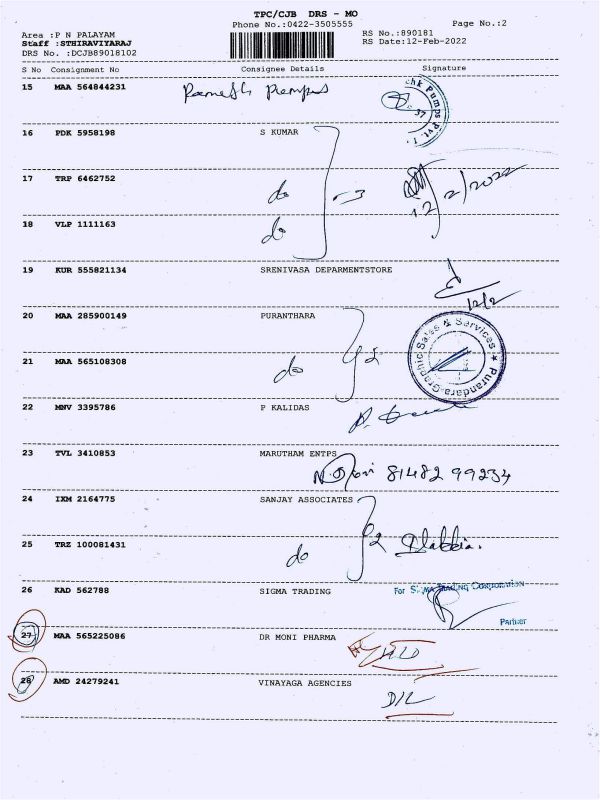 TPC/CJB DRS - MO
Phone No.:0422-3505555
Page No.:2
Area :P N PALAYAM
RS No.:890181
Staff :STHIRAVIYARAJ
RS Date:12-Feb-2022
DRS No. :DCJB89018102
S No Consignment No Consignee Details Signature
15 MAA 564844231 Ramesh Pumps
16 PDK 5958198 S KUMAR
17 TRP 6462752 do 3 12/2/2022
18 VLP 1111163 do
19 KUR 555821134 SRENIVASA DEPARMENTSTORE
12/2
20 MAA 285900149 PURANTHARA
Purandara Graphic Sales & Services
21 MAA 565108308 do 2
22 MNV 3395786 P KALIDAS
23 TVL 3410853 MARUTHAM ENTPS
81482 99234
24 IXM 2164775 SANJAY ASSOCIATES
25 TRZ 100081431 do 2
26 KAD 562788 SIGMA TRADING For SIGMA TRADING CORPORATION
Partner
27 MAA 565225086 DR MONI PHARMA
28 AMD 24279241 VINAYAGA AGENCIES
D/L